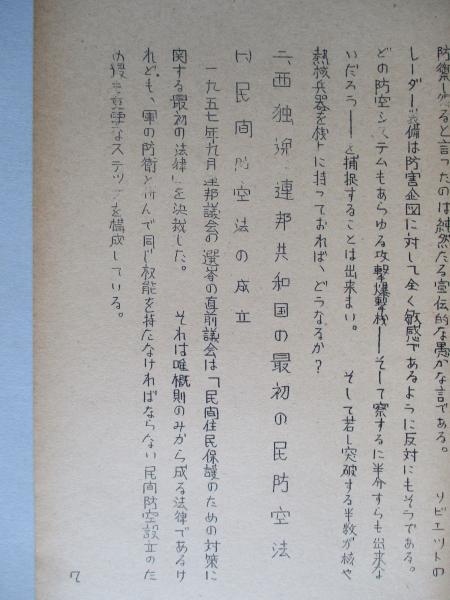 防衛しうると言ったのは純然たる宣伝的な愚かな言である。 ソビエットの
レーダー装備は防害企図に対して全く敏感であるように反対にもそうである。
どの防空システムもあらゆる攻撃爆撃機——そして察するに半分すらも出来な
いだろう——を捕捉することは出来まい。 そして若し突破する半数が核や
熱核兵器を機上に持っておれば、どうなるか?
二、西独逸・連邦共和国の最初の民防空法
(一)民間防空法の成立
一九五七年九月連邦議会の選挙の直前議会は「民間住民保護のための対策に
関する最初の法律」を決裁した。 それは唯概則のみから成る法律であるけ
れども、軍の防衛と併んで同じ权能を持たなければならない民間防空設立のた
め後も重要なステップを構成している。
7